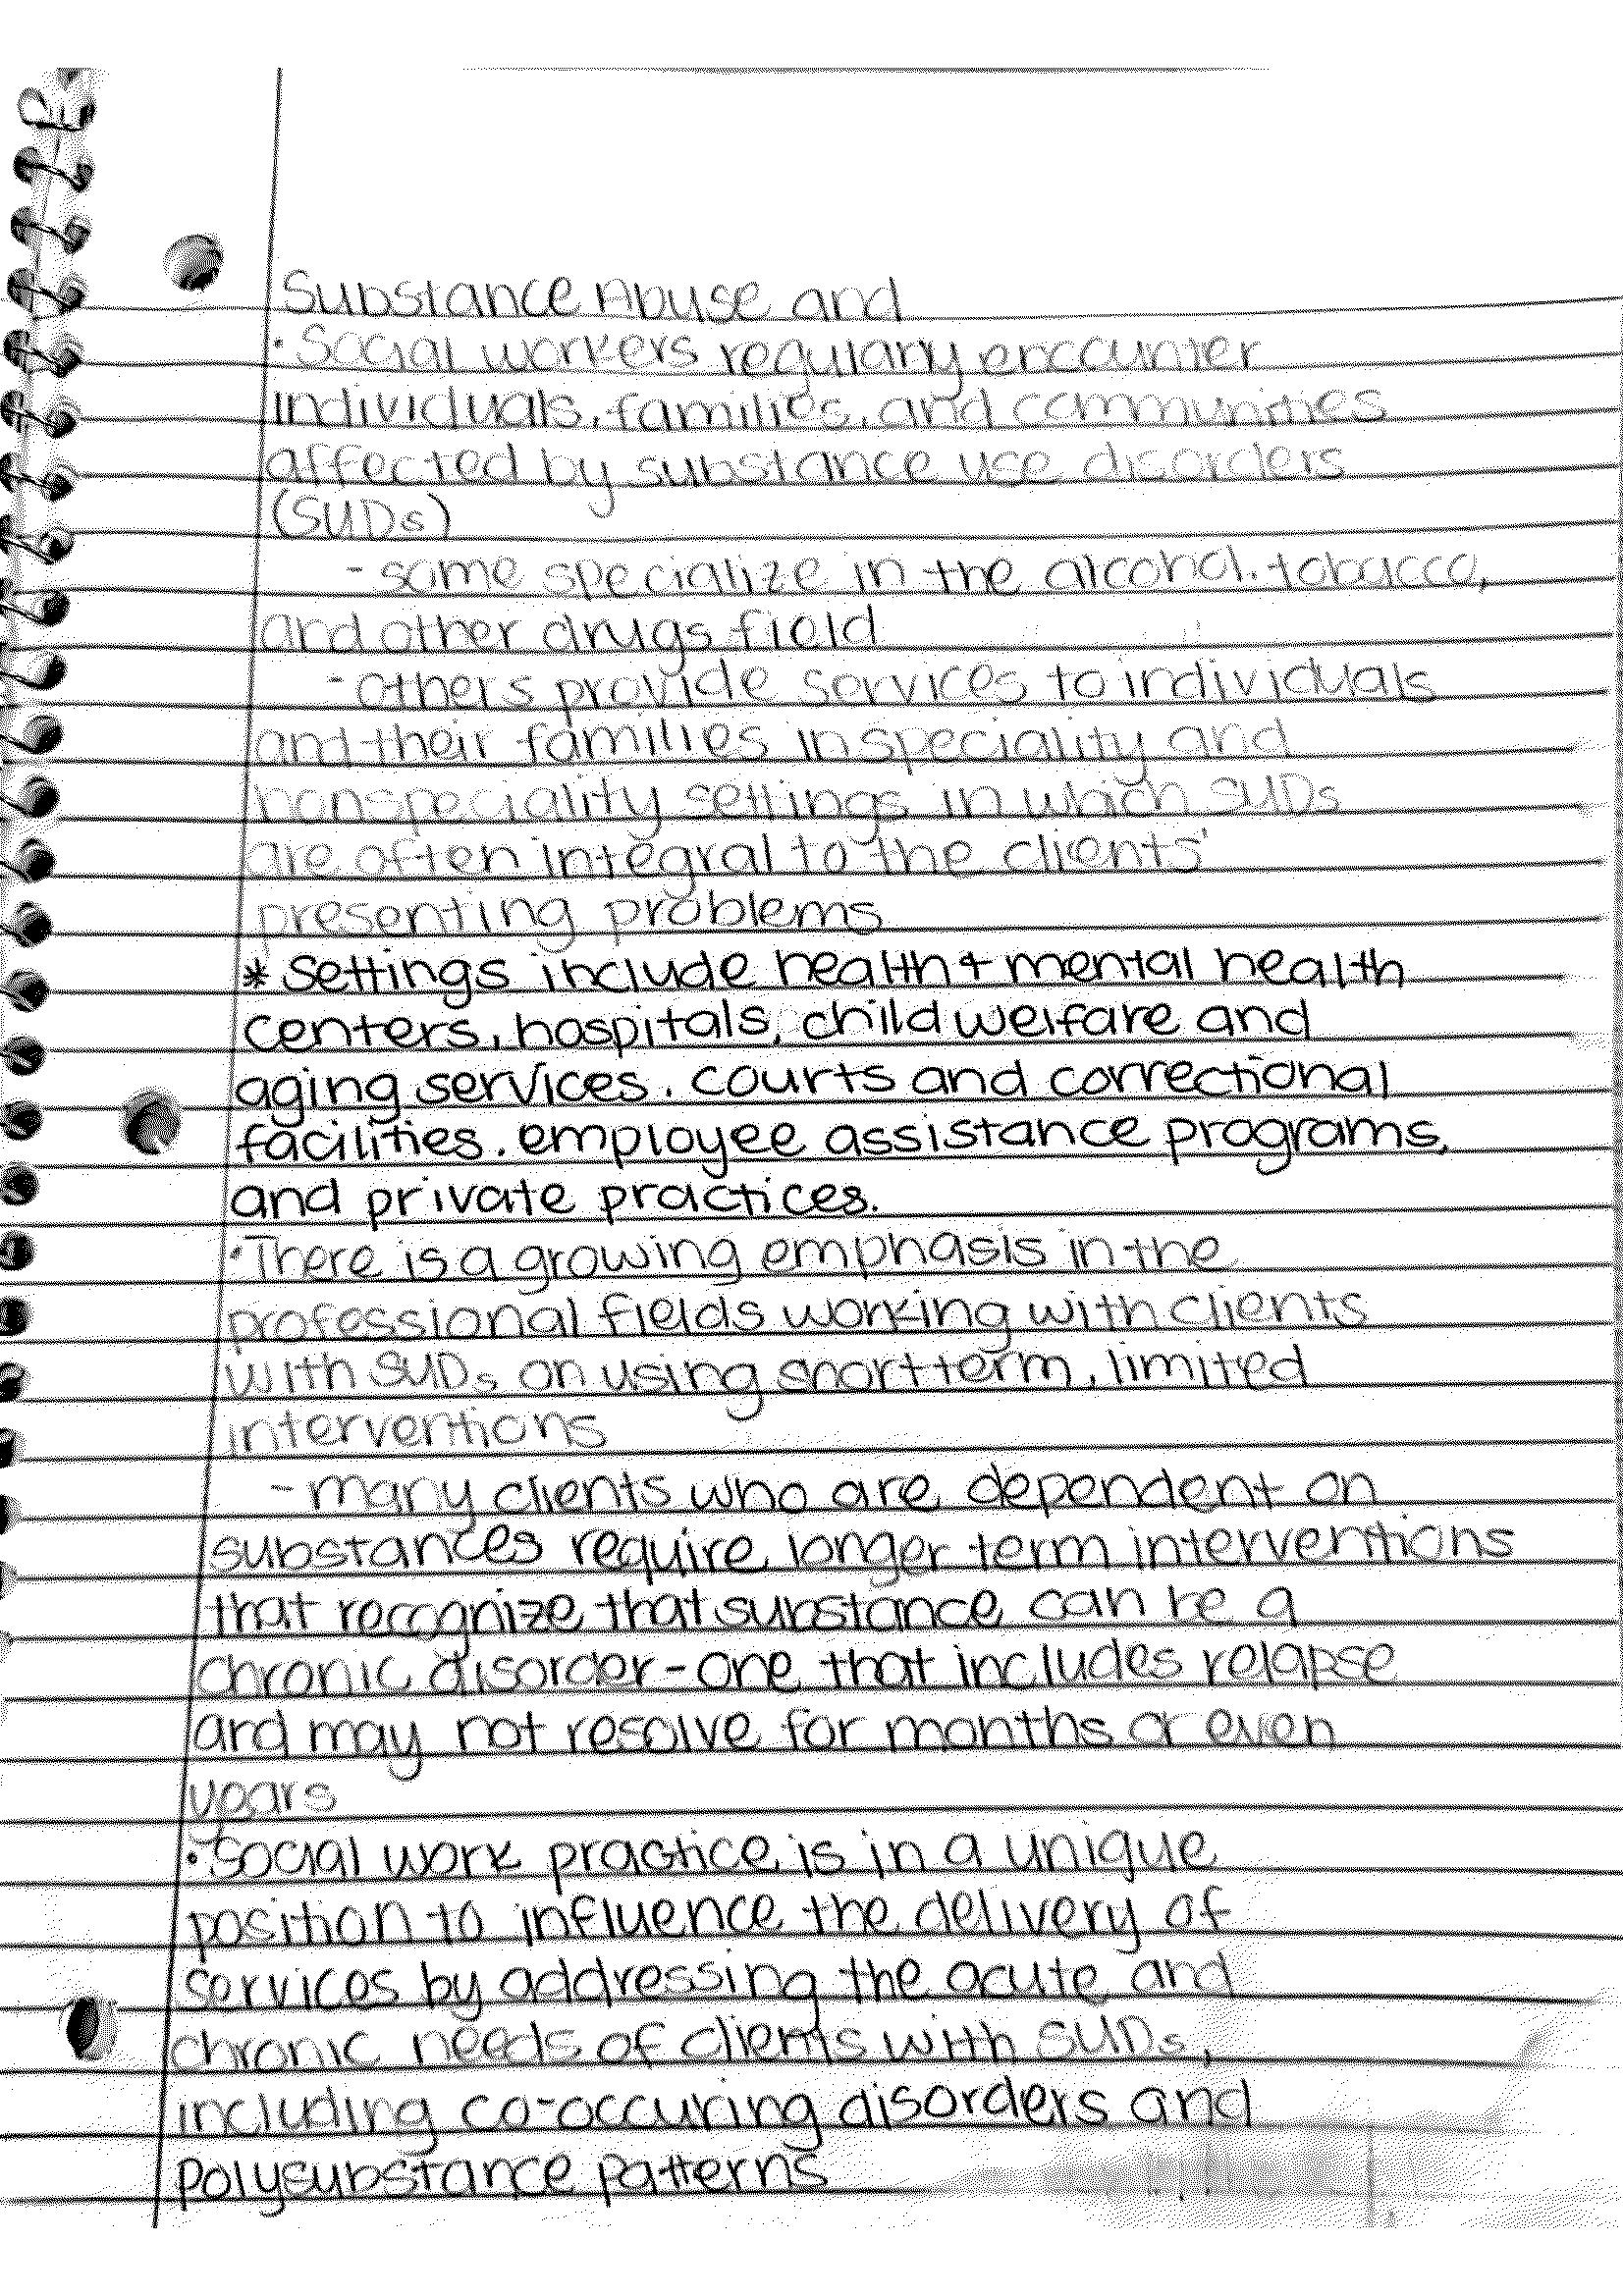 Substance Abuse and
• Social workers regulary encounter
individuals, families, and communities
affected by substance use disorders
(SUDs)
- some specialize in the alcohol, tobacco,
and other drugs field
- others provide services to individuals
and their families in speciality and
nonspeciality settings in which SUDs
are often integral to the clients'
presenting problems
* Settings include health & mental health
centers, hospitals, child welfare and
aging services, courts and correctional
facilities, employee assistance programs,
and private practices.
• There is a growing emphasis in the
professional fields working with clients
with SUDs on using short term, limited
interventions
- many clients who are dependent on
substances require longer term interventions
that recognize that substance can be a
chronic disorder - one that includes relapse
and may not resolve for months or even
years
• Social work practice is in a unique
position to influence the delivery of
services by addressing the acute and
chronic needs of clients with SUDs,
including co-occuring disorders and
polysubstance patterns